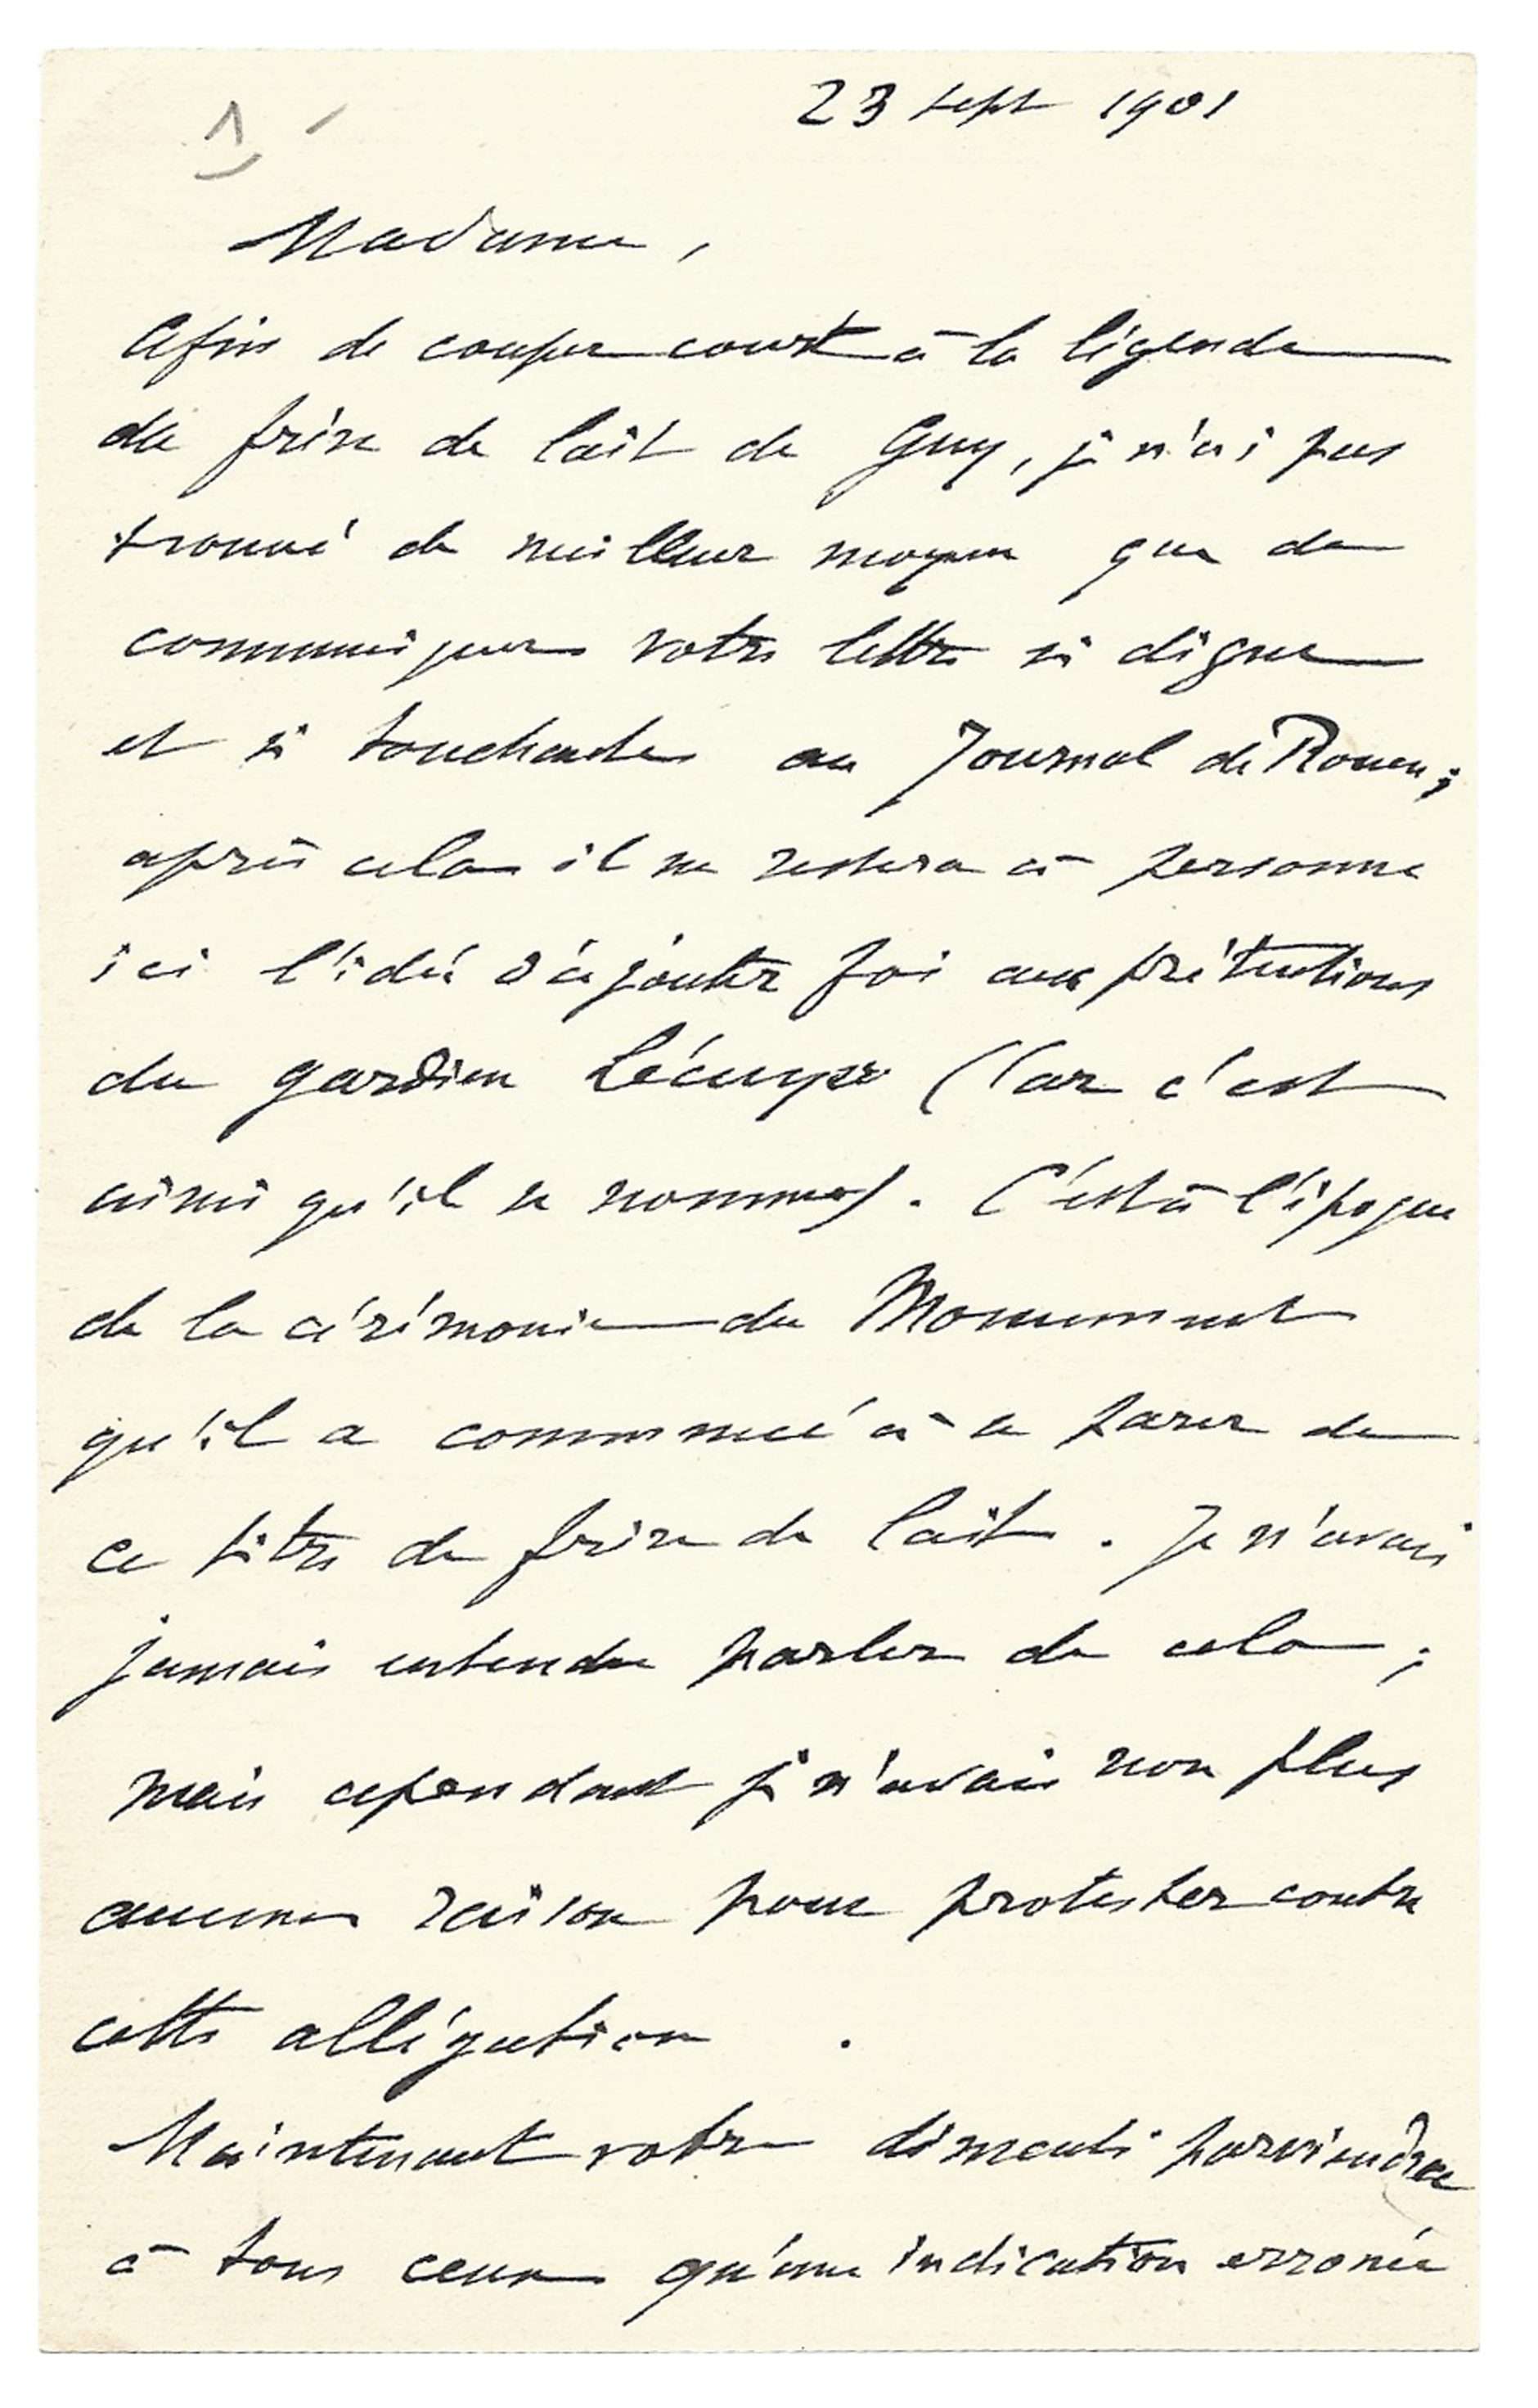 1
23 sept 1901
Madame,
Afin de couper court à la légende
du frère de lait de Guy, je n'ai pas
trouvé de meilleur moyen que de
communiquer votre lettre si digne
et si touchante au Journal de Rouen;
après cela il ne restera à personne
ici l'idée d'ajouter foi aux prétentions
du gardien (Car c'est
ainsi qu'il se nomme). C'est à l'époque
de la cérémonie du Monument
qu'il a commencé à se parer de
ce titre de frère de lait. Je n'avais
jamais entendu parler de cela;
mais cependant je n'avais non plus
aucune raison pour protester contre
cette allégation.
Maintenant votre démenti parviendra
à tous ceux qu'une indication erronée